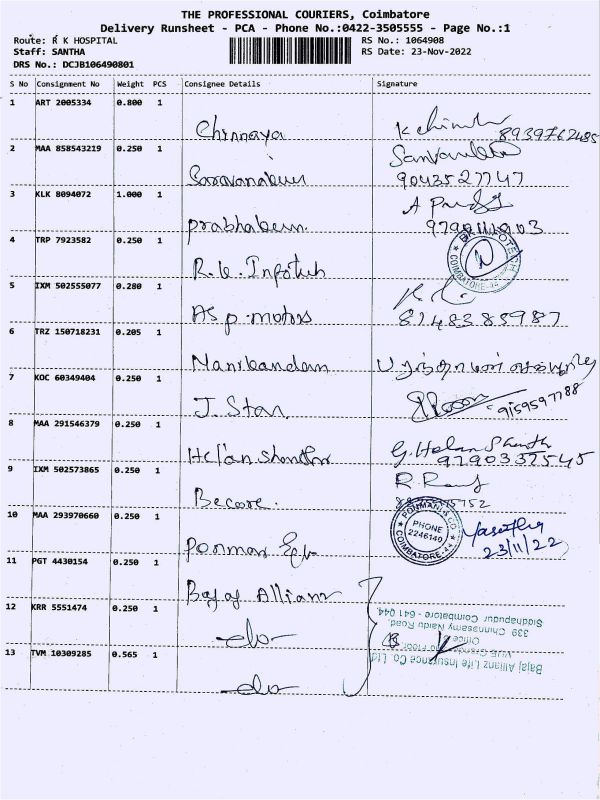 THE PROFESSIONAL COURIERS, Coimbatore
Delivery Runsheet - PCA - Phone No.:0422-3505555 - Page No.:1
Route: R K HOSPITAL
RS No.: 1064908
Staff: SANTHA
RS Date: 23-Nov-2022
DRS No.: DCJB106490801
S No Consignment No Weight PCS Consignee Details Signature
1 ART 2005334 0.800 1
Chinnaya 8939762485
2 MAA 858543219 0.250 1
Saravanakum 9043527747
3 KLK 8094072 1.000 1
prabhakum.
4 TRP 7923582 0.250 1
R.K. Infotech
COIMBATORE-44
5 IXM 502555077 0.280 1
ASP motors 8148385987
6 TRZ 150718231 0.205 1
Manikandan
7 KOC 60349404 0.250 1
J. Star 9159597788
8 MAA 291546379 0.250 1
Helan Shanthi G. Helan Shanthi
9790337545
9 IXM 502573865 0.250 1
Become.
10 MAA 293970660 0.250 1
Ponman
PONMAN & CO
PHONE
2246140
COIMBATORE-44
23/11/22
11 PGT 4430154 0.250 1
Bajaj Allianz
12 KRR 5551474 0.250 1
-do-
13 TVM 10309285 0.565 1
-do-
Bajaj Allianz Life Insurance Co. Ltd
Office
339 Chinnasamy Naidu Road,
Siddhapudur Coimbatore - 641 044